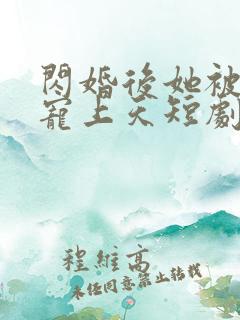 閃婚後她被
寵上天短劇
程維高
未任同意禁止轉載